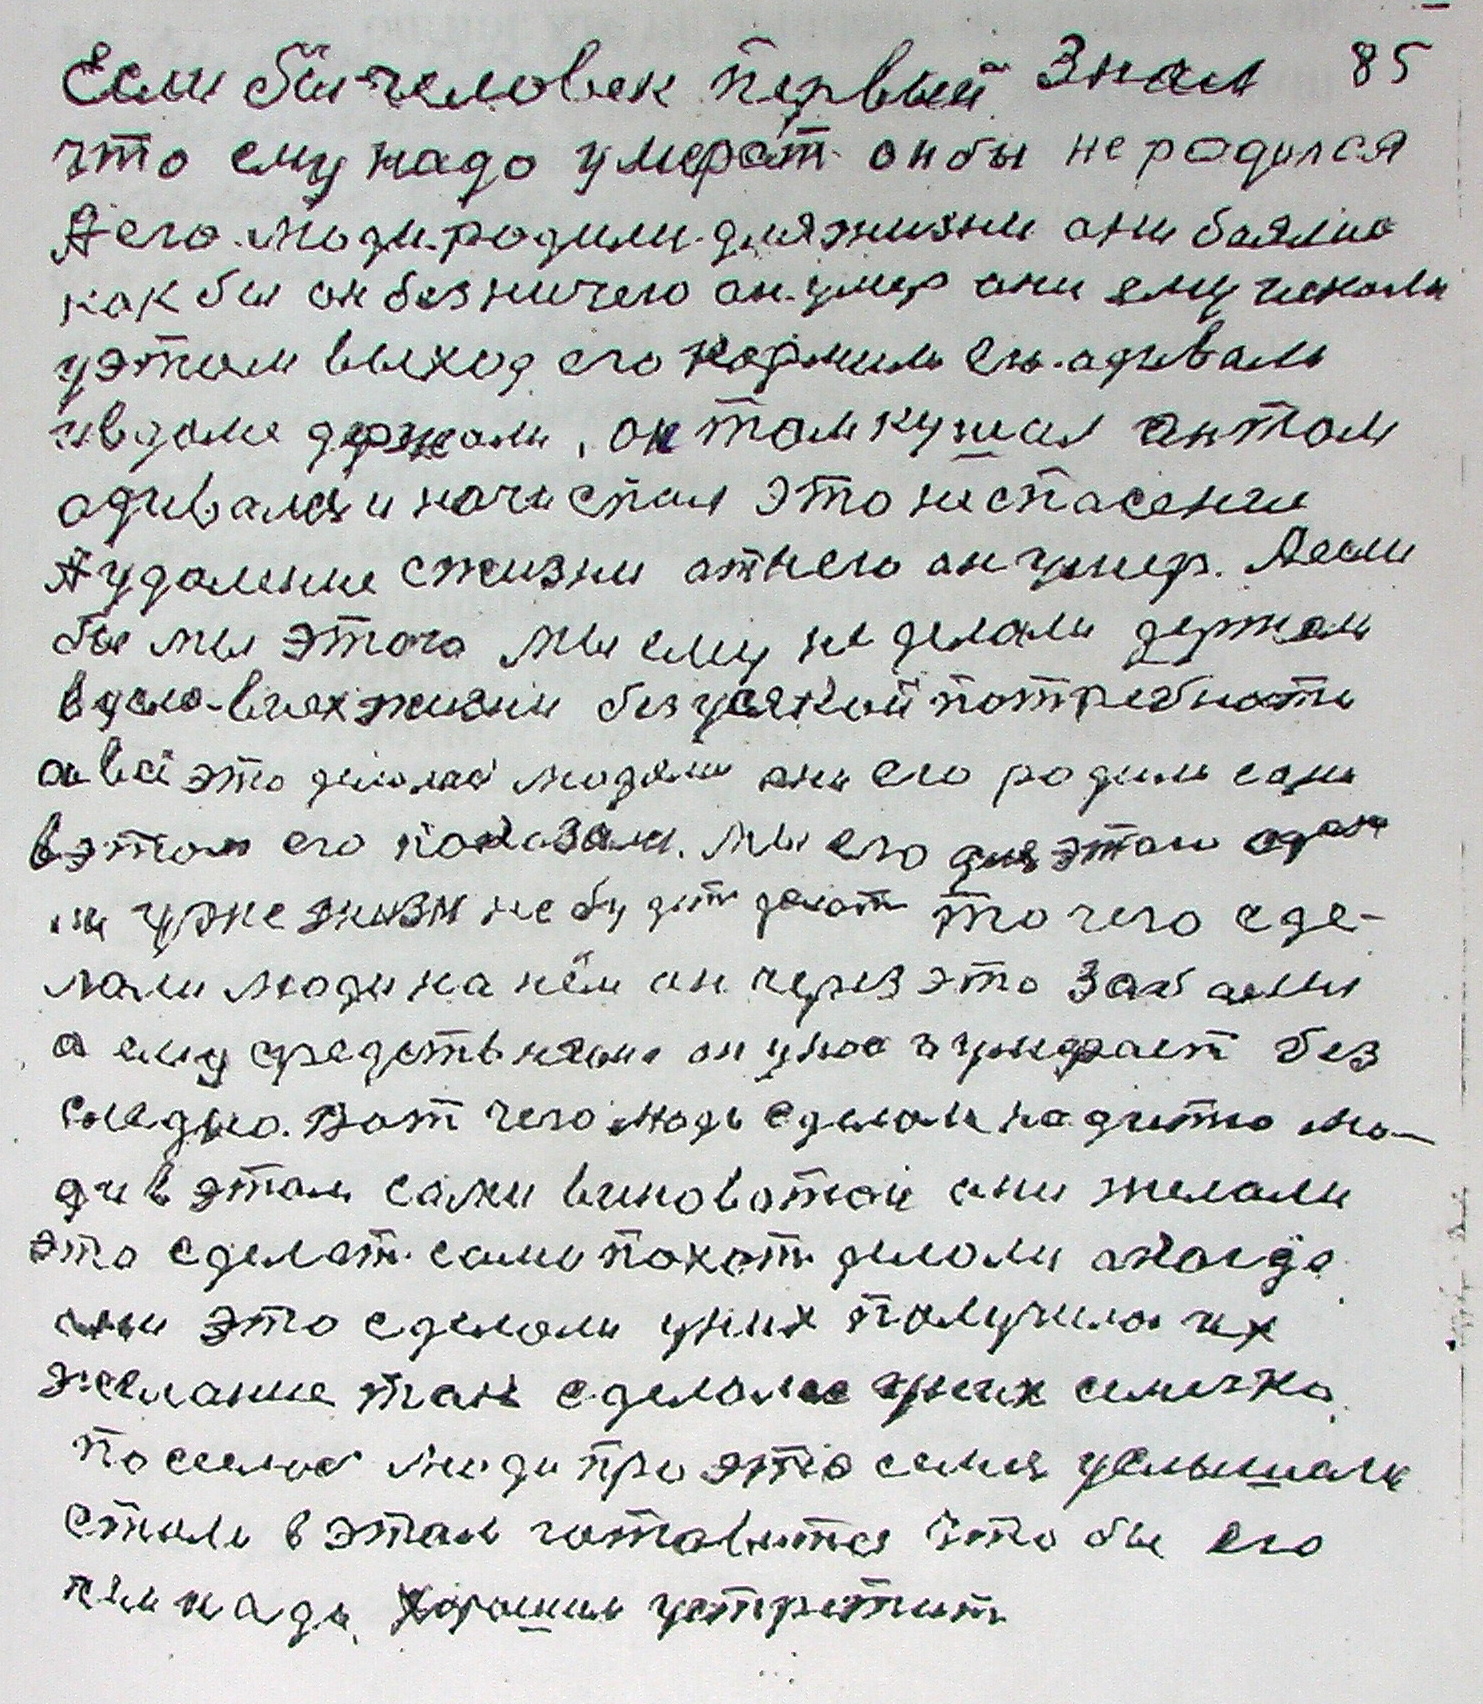 Если бы человек первый знал 85
что ему надо умерат он бы не родился
А его люди родили для жизни ани баялис
как бы он без ничего он умер ани ему искали
у этом выход его кормили его адивали
и в доме держали, он там кушал он там
адивался и ночи спал это не спасение
А удаление с жизни от него он умер. А если
бы мы этого мы ему не делали держали
в жизни без усякой потребности
а всё это делалас людями они его родили
в этом его показали. мы его для этого
уже жизн не будит делат то чего сде-
лали люди на нём он через это заболел
а ему средств нема он у нас и умерает без
следно. Вот чего люди сделали на дитю лю-
ди в этом сами виноватои они желали
это сделат сами похот делали а когда
ани это сделали у них получилас их
желание так сделалос у них семечка
поселилос люди про это сами услышали
стали в этом готовится что бы его
надо хорошим устретит